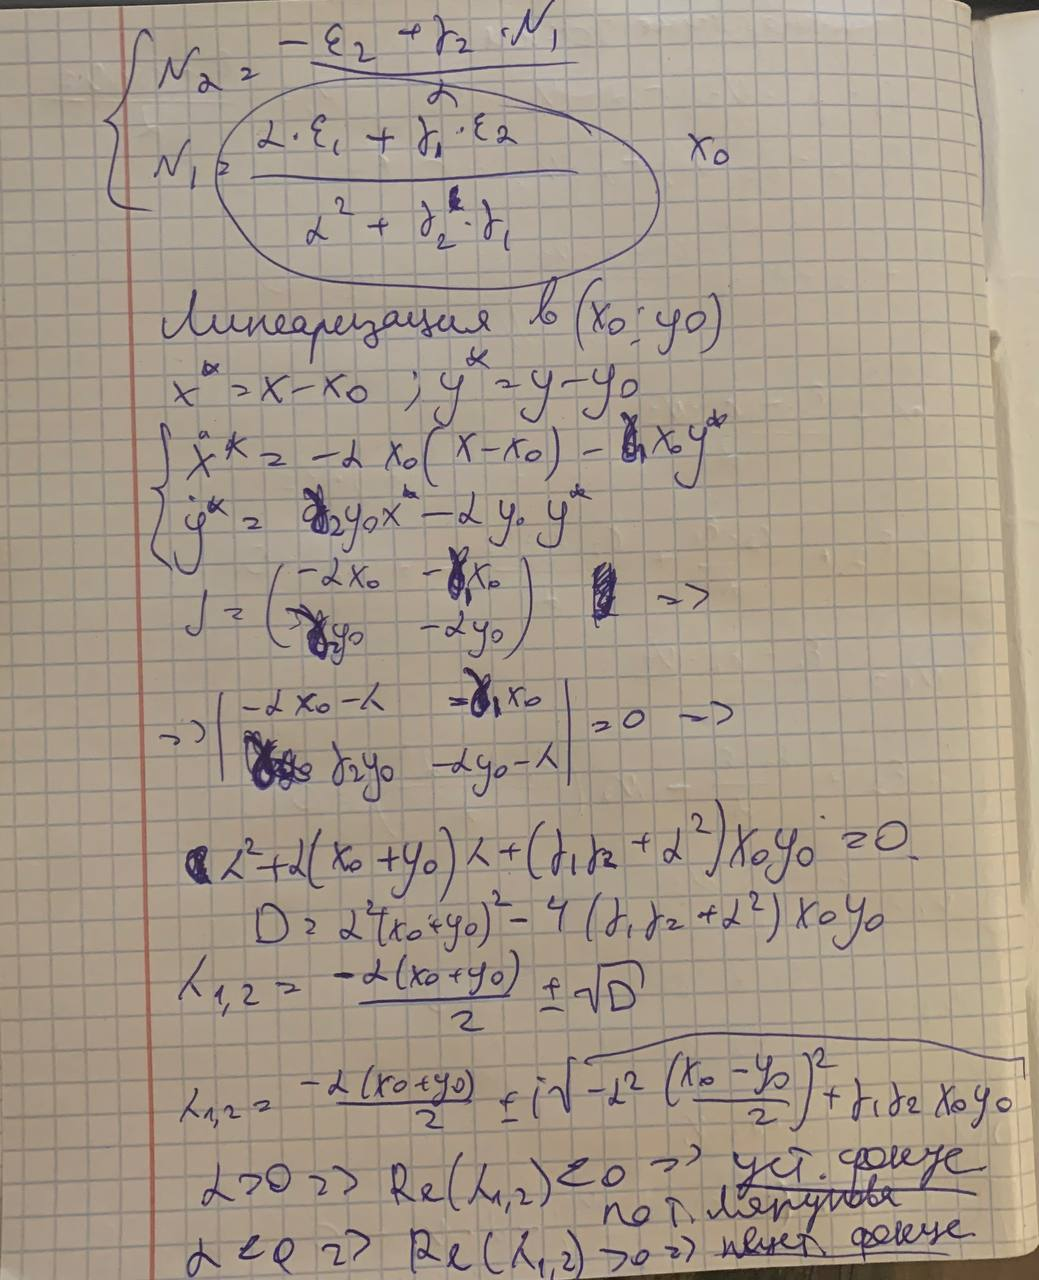 N₂ = (-ε₂ + γ₂ · N₁) / α
N₁ = (α · ε₁ + γ₁ · ε₂) / (α² + γ₂ · γ₁)    x₀
Линеаризация в (x₀; y₀)
x* = x - x₀ ; y* = y - y₀
ẋ* = -α x₀(x - x₀) - γ₁x₀y*
ẏ* = γ₂y₀x* - α y₀ y*
J = ( -αx₀  -γ₁x₀ ; γ₂y₀  -αy₀ ) =>
=> | -αx₀ - λ  -γ₁x₀ ; γ₂y₀  -αy₀ - λ | = 0 =>
λ² + α(x₀ + y₀)λ + (γ₁γ₂ + α²)x₀y₀ = 0
D = α²(x₀ + y₀)² - 4(γ₁γ₂ + α²)x₀y₀
λ₁,₂ = -α(x₀ + y₀) / 2 ± √D
λ₁,₂ = -α(x₀ + y₀) / 2 ± i√(-α²((x₀ - y₀) / 2)² + γ₁γ₂x₀y₀)
α > 0 => Re(λ₁,₂) < 0 => уст. фокус
по т. Ляпунова
α < 0 => Re(λ₁,₂) > 0 => неуст. фокус